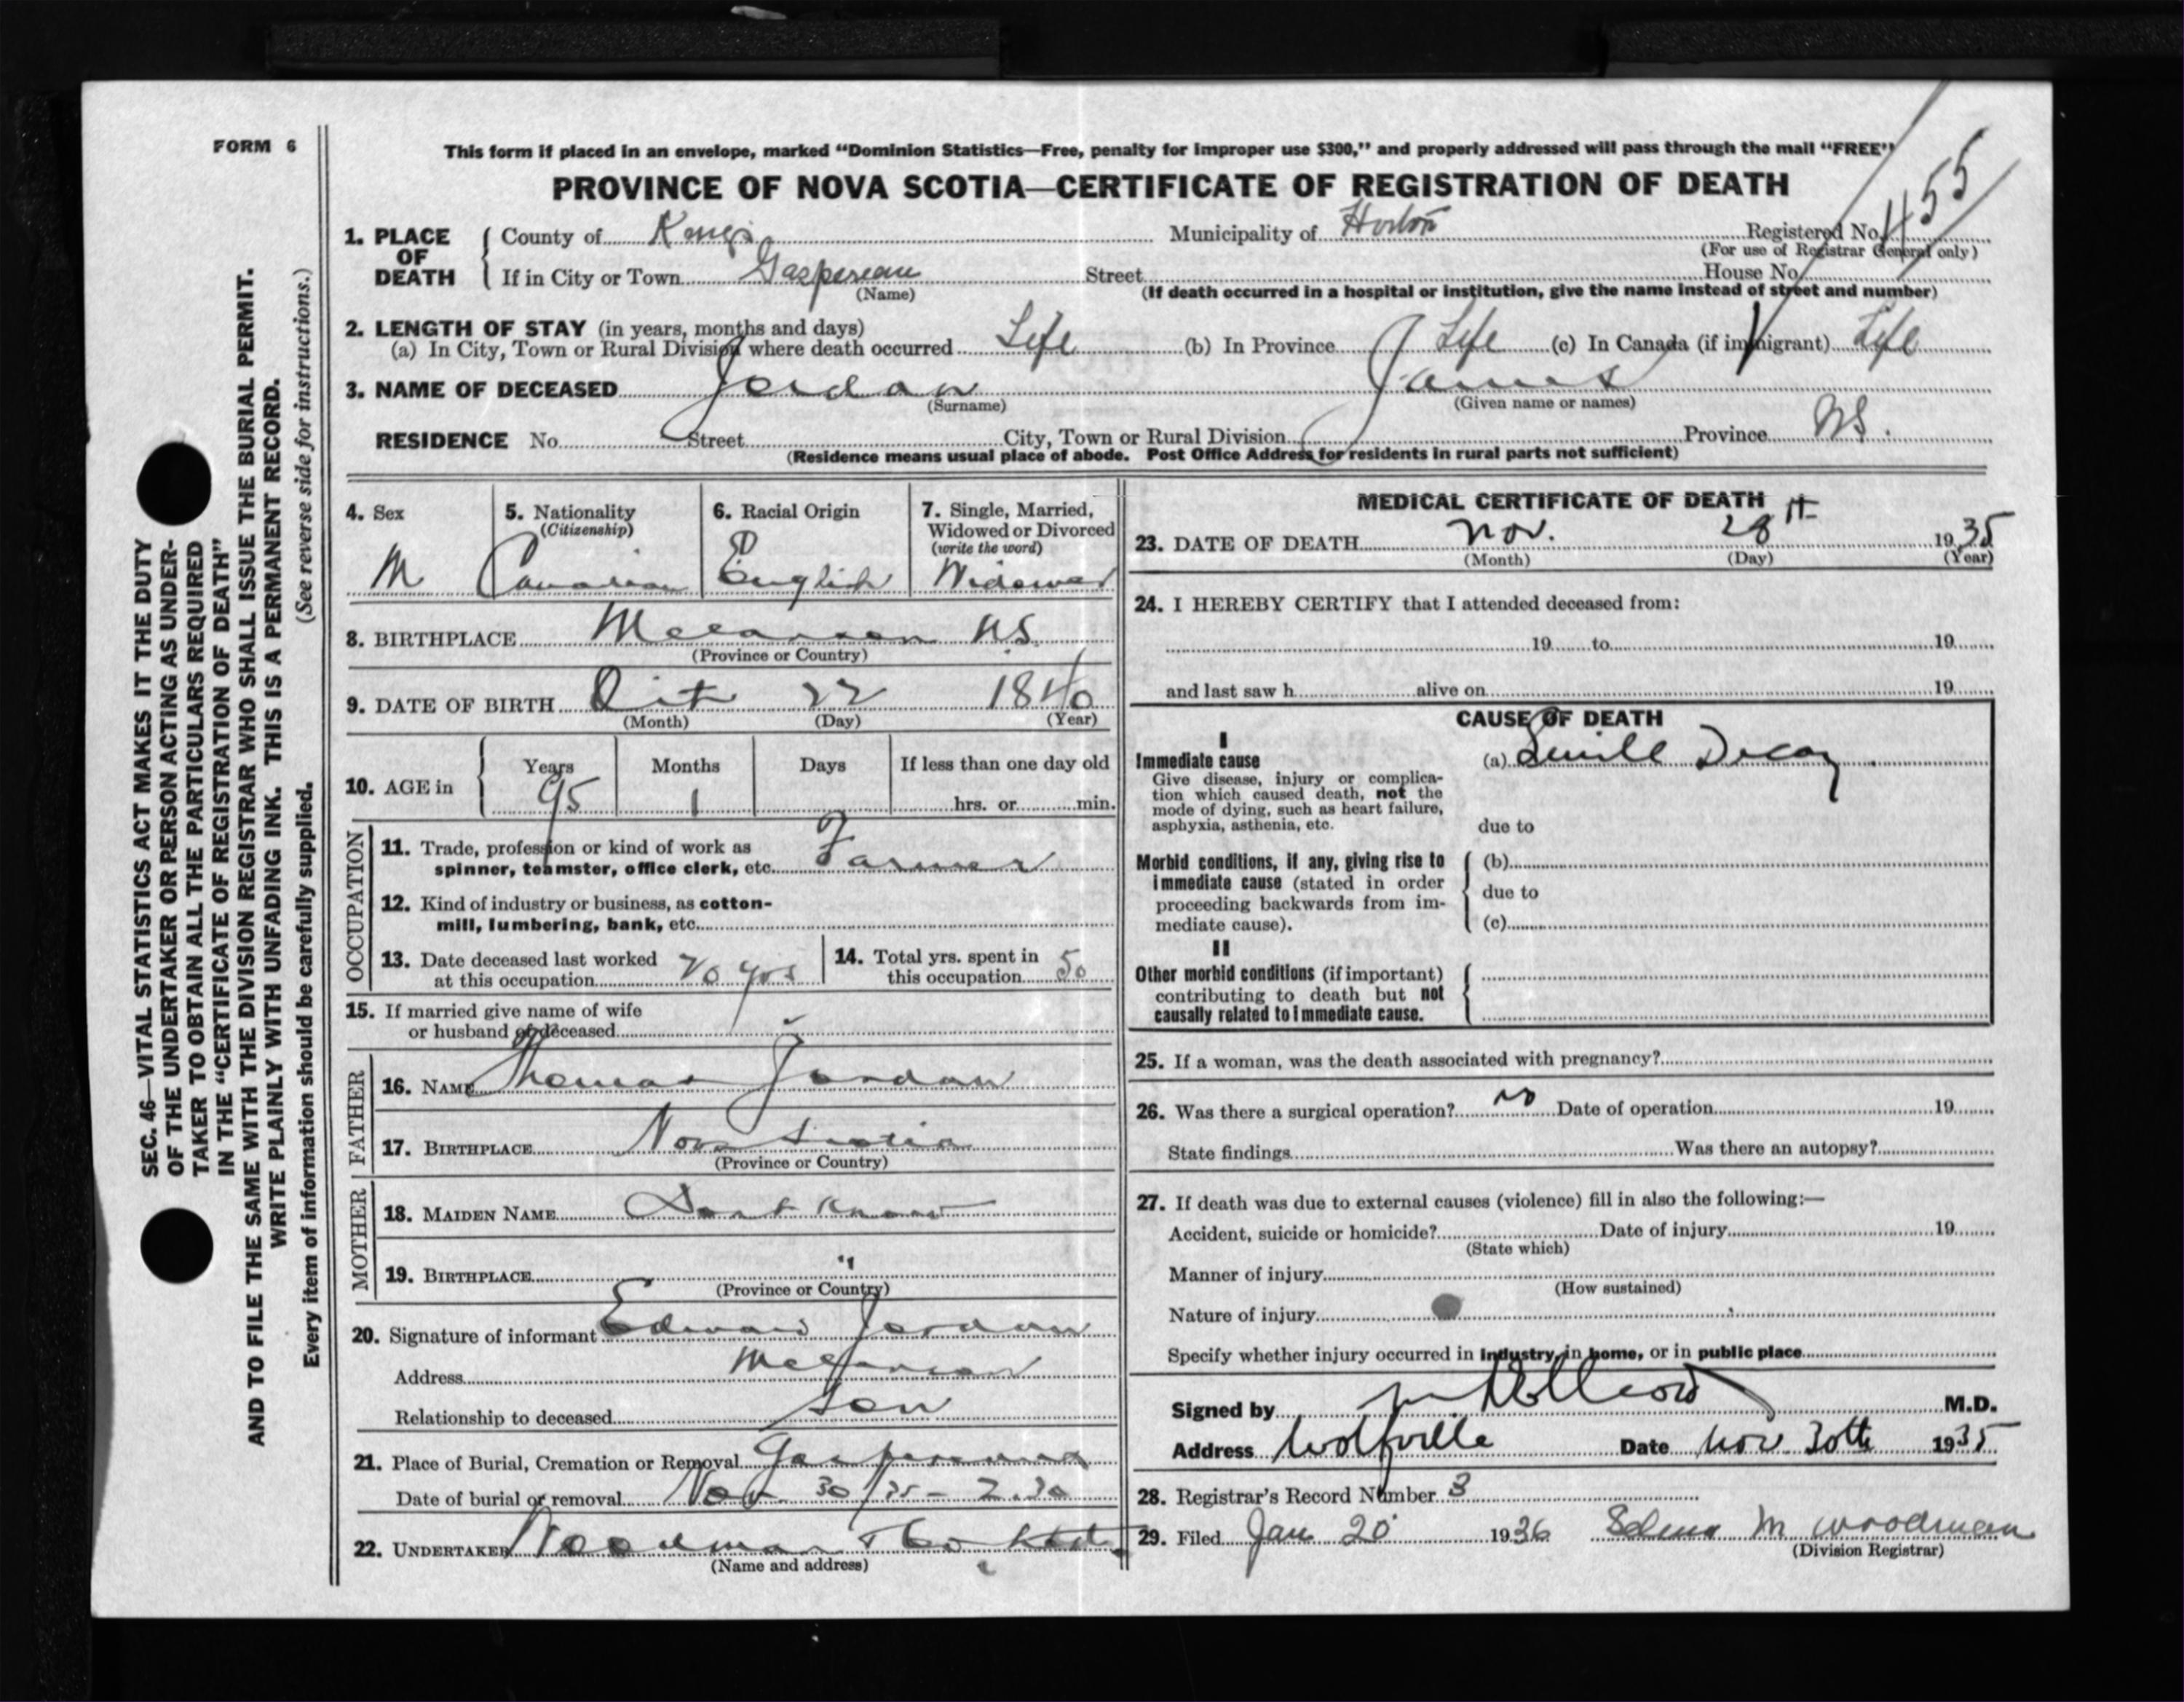 FORM 6
This form if placed in an envelope, marked "Dominion Statistics—Free, penalty for improper use $300," and properly addressed will pass through the mail "FREE"
PROVINCE OF NOVA SCOTIA—CERTIFICATE OF REGISTRATION OF DEATH
1. PLACE OF DEATH County of Kings Municipality of Horton Registered No. 455
(For use of Registrar General only)
If in City or Town Gaspereau Street House No.
(Name) (If death occurred in a hospital or institution, give the name instead of street and number)
2. LENGTH OF STAY (in years, months and days)
(a) In City, Town or Rural Division where death occurred Life (b) In Province Life (c) In Canada (if immigrant) Life
3. NAME OF DECEASED Jordan James
(Surname) (Given name or names)
RESIDENCE No. Street City, Town or Rural Division Province NS.
(Residence means usual place of abode. Post Office Address for residents in rural parts not sufficient)
4. Sex 5. Nationality 6. Racial Origin 7. Single, Married,
(Citizenship) Widowed or Divorced
(write the word)
M Canadian English Widower
8. BIRTHPLACE NS.
(Province or Country)
9. DATE OF BIRTH Oct 22 1840
(Month) (Day) (Year)
10. AGE in Years Months Days If less than one day old
95 1 hrs. or min.
OCCUPATION
11. Trade, profession or kind of work as
spinner, teamster, office clerk, etc. Farmer
12. Kind of industry or business, as cotton-
mill, lumbering, bank, etc.
13. Date deceased last worked
at this occupation 20 yrs
14. Total yrs. spent in
this occupation 50
15. If married give name of wife
or husband of deceased
FATHER
16. NAME Thomas Jordan
17. BIRTHPLACE Nova Scotia
(Province or Country)
MOTHER
18. MAIDEN NAME Dont Know
19. BIRTHPLACE "
(Province or Country)
20. Signature of informant Edward Jordan
Address
Relationship to deceased Son
21. Place of Burial, Cremation or Removal Gaspereau
Date of burial or removal Nov 30/35 - 2.30
22. UNDERTAKER Woodman & Co
(Name and address)
MEDICAL CERTIFICATE OF DEATH
23. DATE OF DEATH Nov. 28th 1935
(Month) (Day) (Year)
24. I HEREBY CERTIFY that I attended deceased from:
19 to 19
and last saw h alive on 19
CAUSE OF DEATH
I
Immediate cause (a) Senile Decay.
Give disease, injury or complica-
tion which caused death, not the
mode of dying, such as heart failure,
asphyxia, asthenia, etc. due to
Morbid conditions, if any, giving rise to (b)
immediate cause (stated in order due to
proceeding backwards from im-
mediate cause). (c)
II
Other morbid conditions (if important)
contributing to death but not
causally related to immediate cause.
25. If a woman, was the death associated with pregnancy?
26. Was there a surgical operation? no Date of operation 19
State findings Was there an autopsy?
27. If death was due to external causes (violence) fill in also the following:—
Accident, suicide or homicide? Date of injury 19
(State which)
Manner of injury
(How sustained)
Nature of injury
Specify whether injury occurred in industry, in home, or in public place
Signed by M.D.
Address Wolfville Date Nov 30th 1935
28. Registrar's Record Number 3
29. Filed Jan 20 1936 M Woodman
(Division Registrar)
SEC. 46—VITAL STATISTICS ACT MAKES IT THE DUTY
OF THE UNDERTAKER OR PERSON ACTING AS UNDER-
TAKER TO OBTAIN ALL THE PARTICULARS REQUIRED
IN THE "CERTIFICATE OF REGISTRATION OF DEATH"
AND TO FILE THE SAME WITH THE DIVISION REGISTRAR WHO SHALL ISSUE THE BURIAL PERMIT.
WRITE PLAINLY WITH UNFADING INK. THIS IS A PERMANENT RECORD.
Every item of information should be carefully supplied. (See reverse side for instructions.)